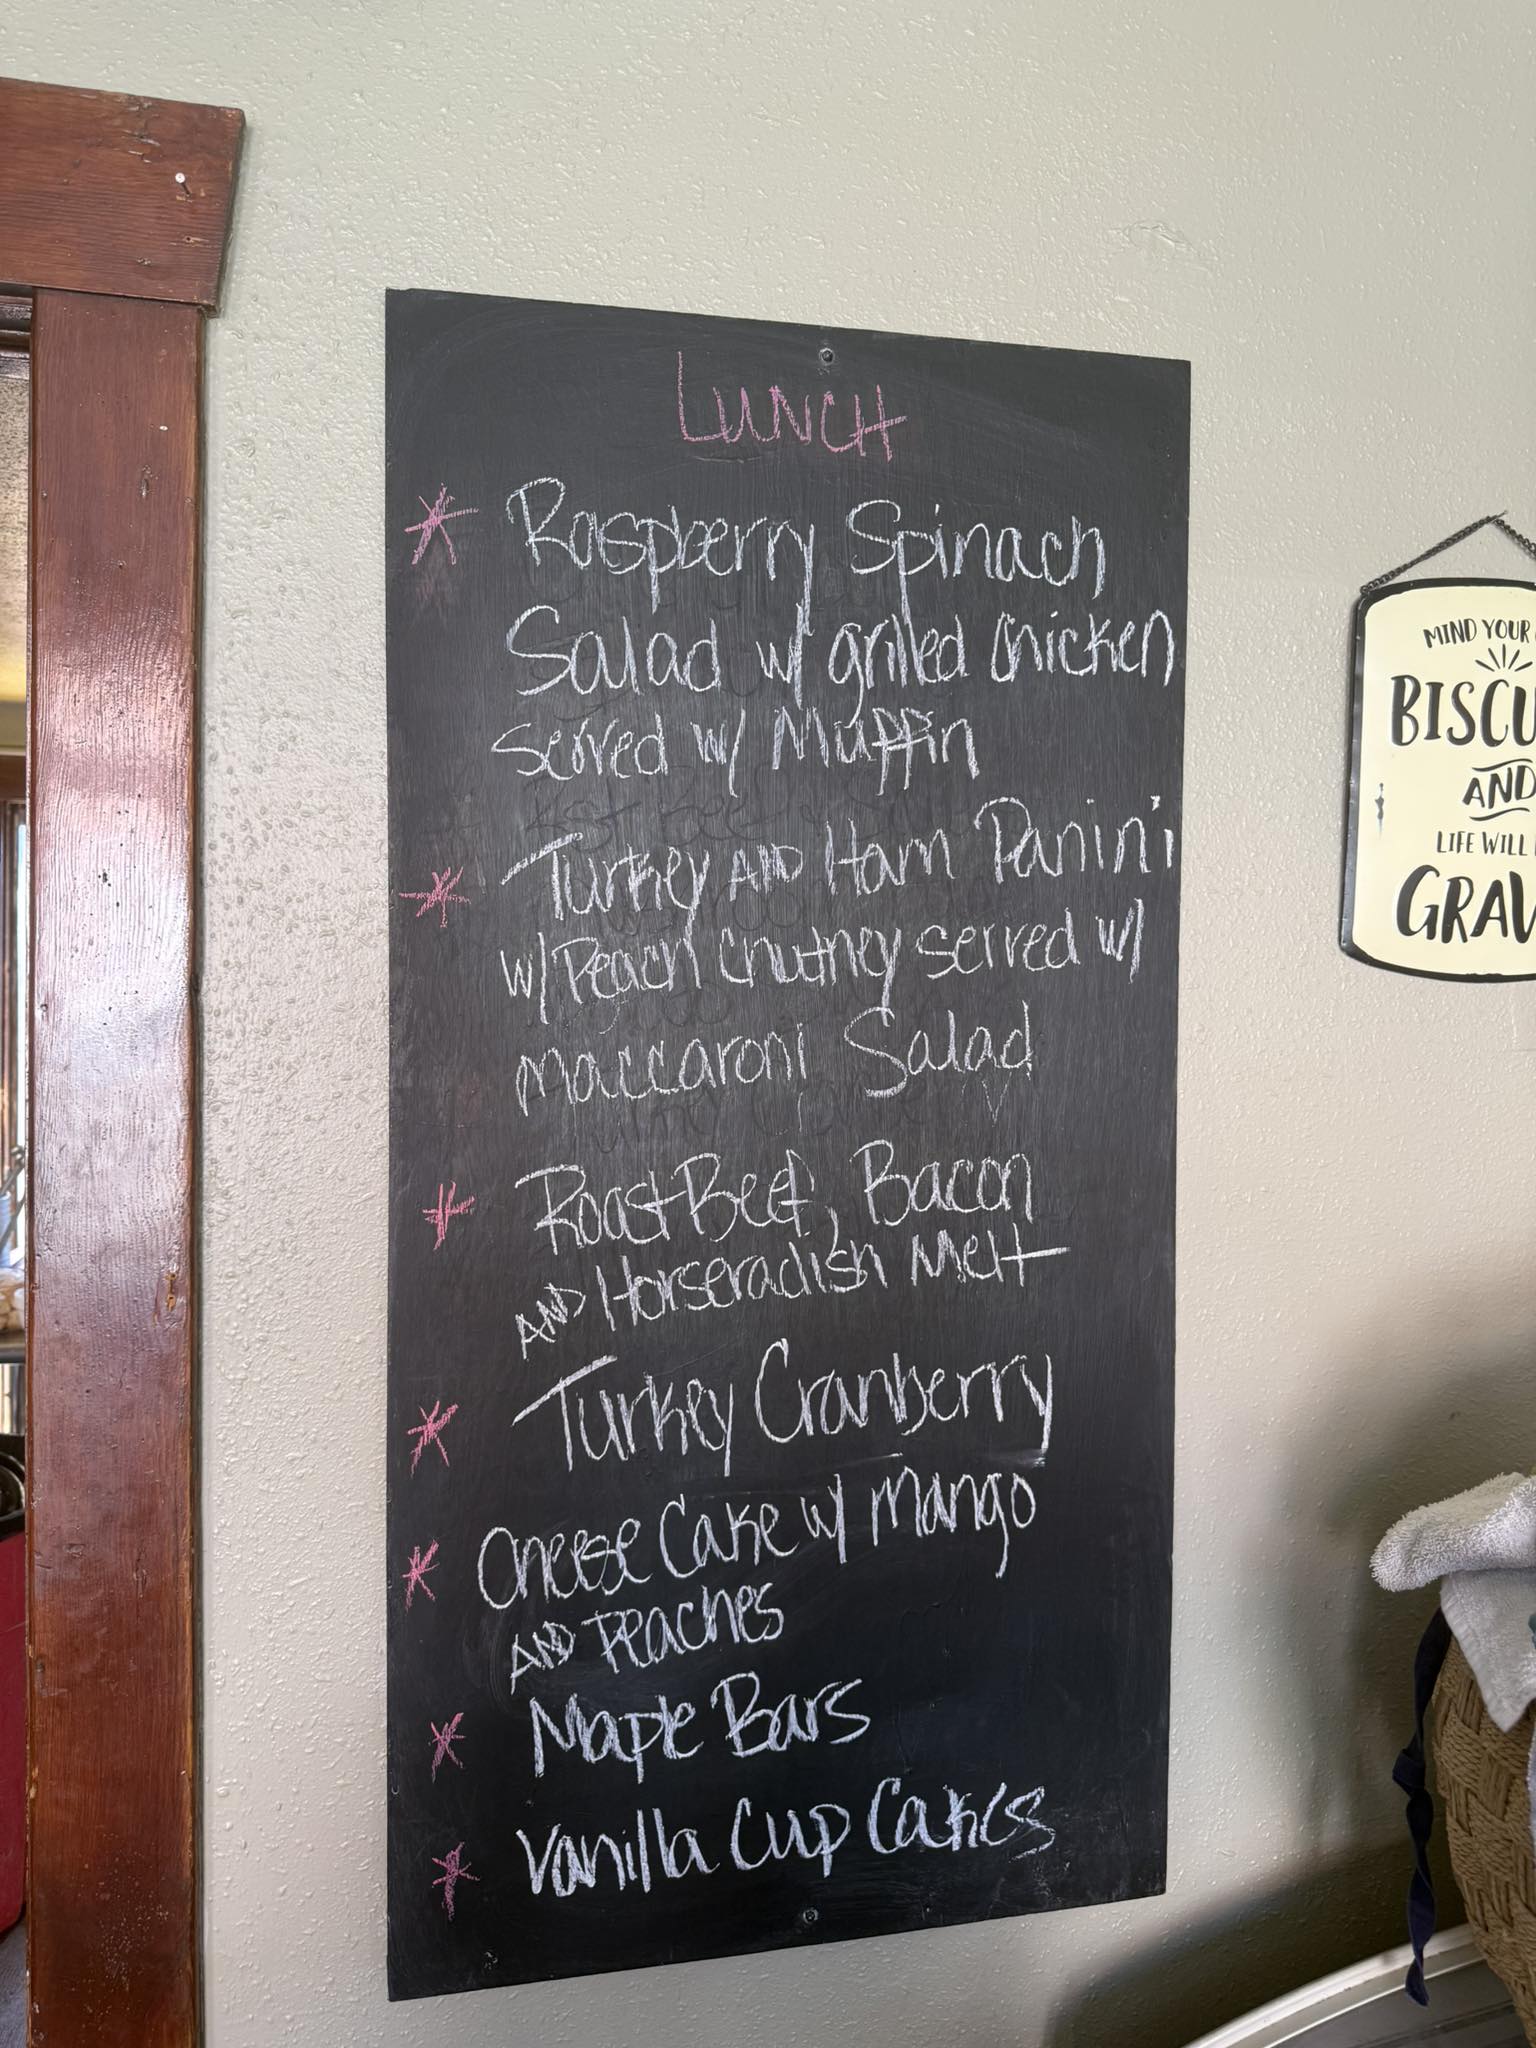 LUNCH
* Raspberry Spinach
Salad w/ grilled chicken
served w/ Muffin
* Turkey AND Ham Panini
w/ Peach chutney served w/
maccaroni Salad
* Roast Beef, Bacon
AND Horseradish Melt
* Turkey Cranberry
* Cheese Cake w/ Mango
AND Peaches
* Maple Bars
* Vanilla Cup Cakes
MIND YOUR
BISCU
AND
LIFE WILL
GRAV